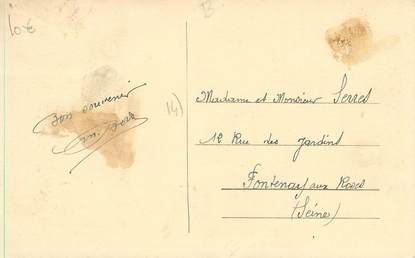 10€
B
Bon souvenir
14)
Madame et Monsieur Serres
12 Rue des Jardins
Fontenay aux Roses
(Seine)